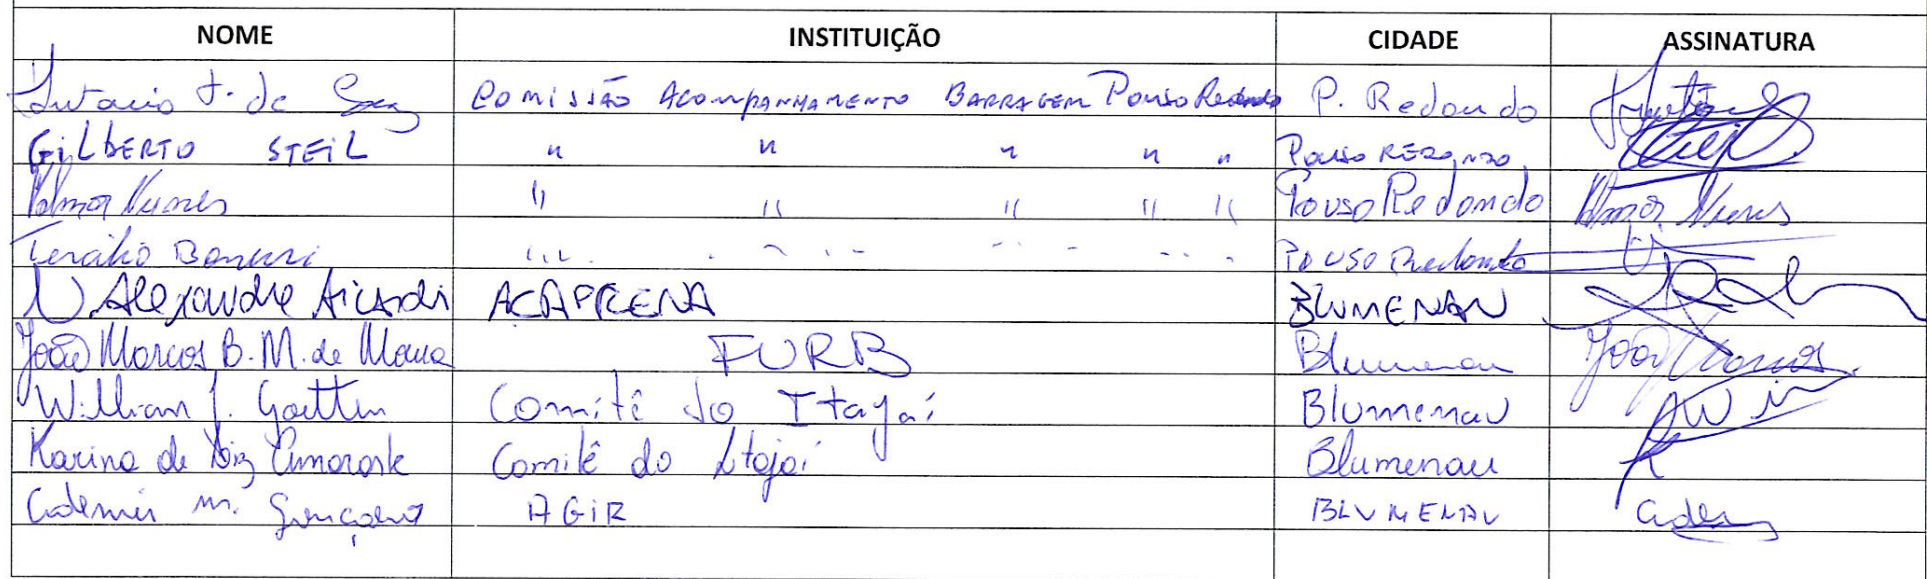 NOME INSTITUIÇÃO CIDADE ASSINATURA
J. de Comissão Acompanhamento Barragem Pouso Redondo P. Redondo
GILBERTO STEIL " " " " " Pouso REDONDO
Nunes " " " " " Pouso Redondo Nunes
Pouso Redondo
Alexandre ACAPRENA BLUMENAU
João Marcos B. M. de FURB Blumenau João Marcos
William J. Goetten Comitê do Itajaí Blumenau
Karina de Comitê do Itajaí Blumenau
Ademir M. Gonçalves AGIR BLUMENAU